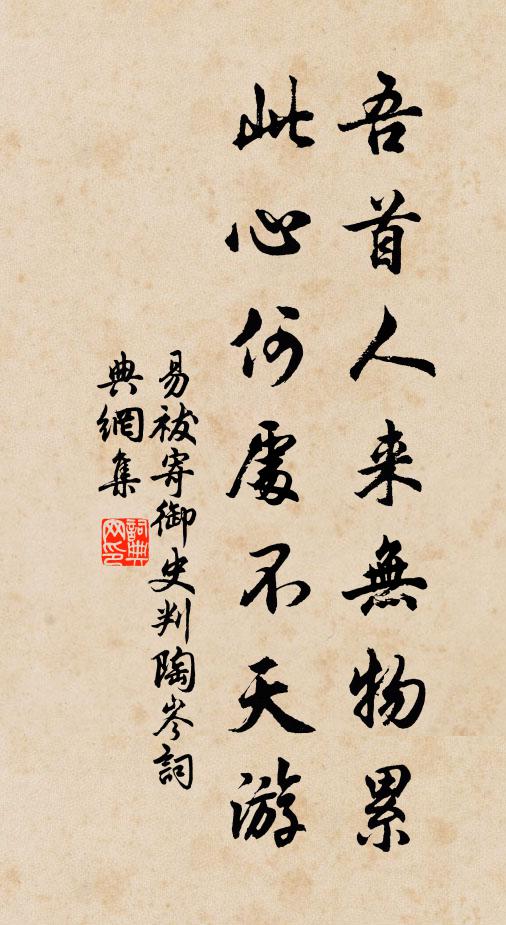 吾首人来無物累
此心何處不天游
易袚寄御史判陶岑詞
典網集
詞典網印